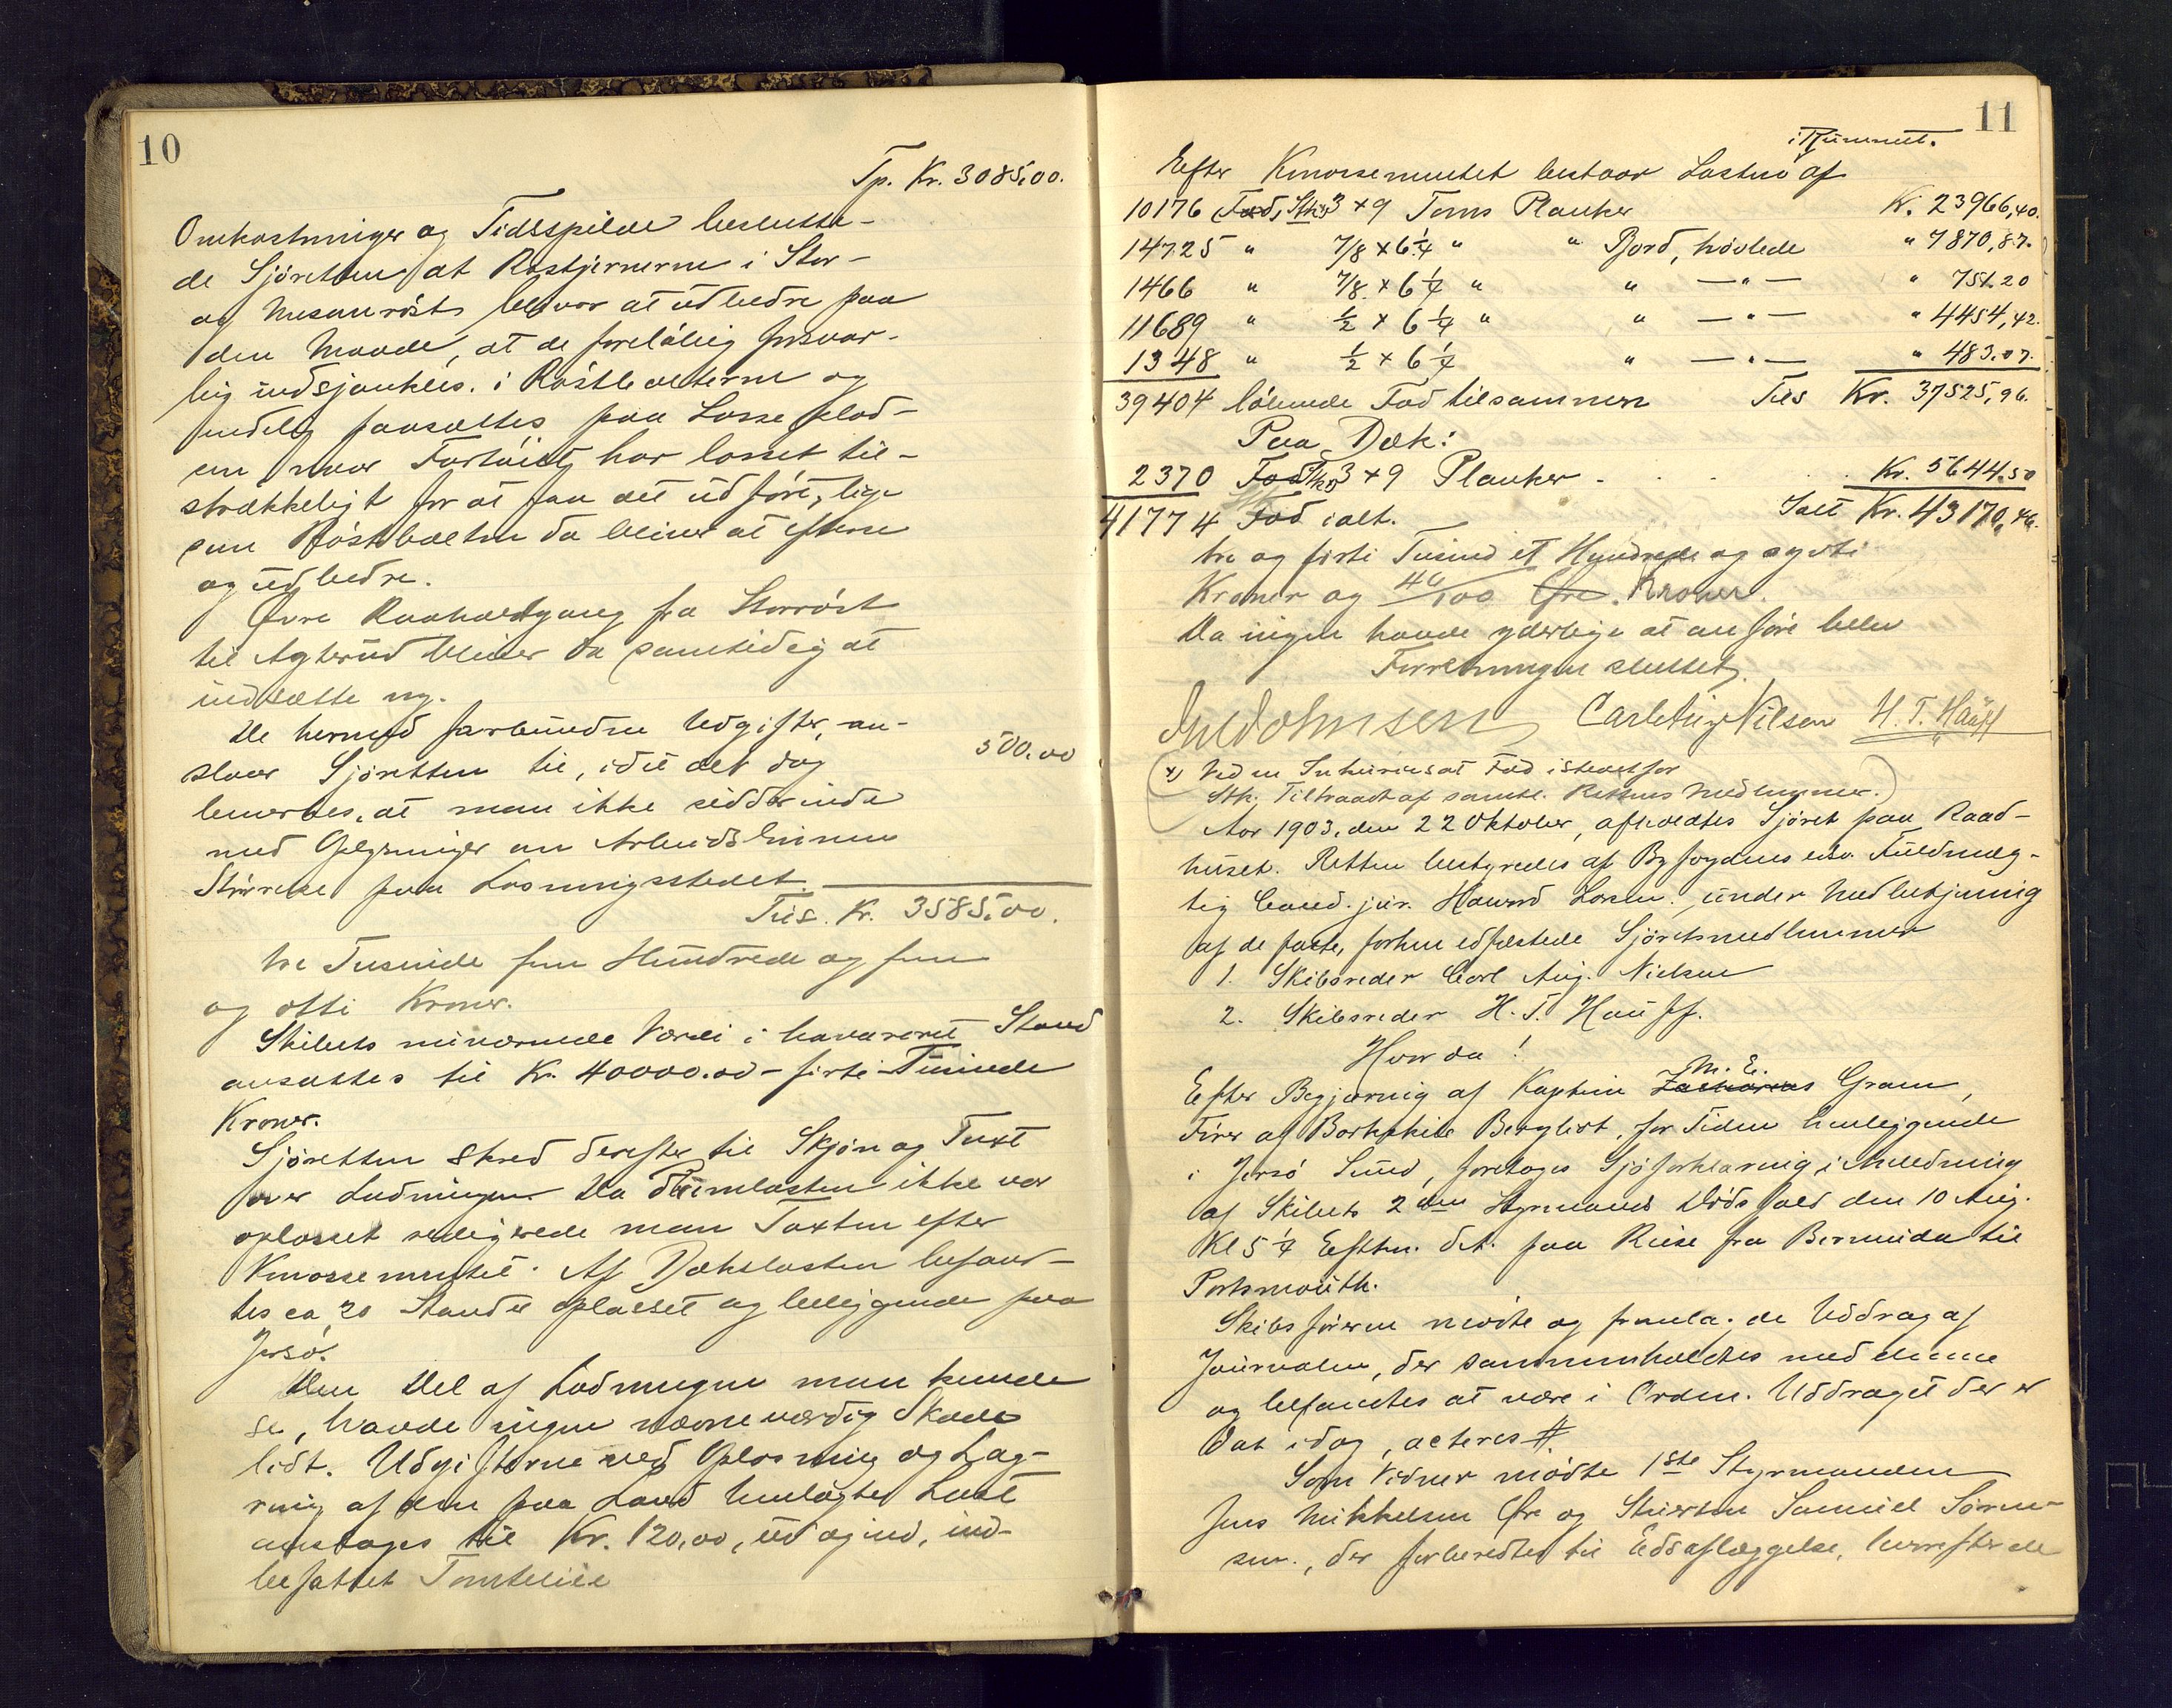 10
Tp. Kr. 3085,00.
Omkostninger og Tidsspilde beslutte-
de Sjøretten, at Røstjernerne i Stor-
og Mesanrøst bliver at udbedre paa
den Maade, at de foreløbig forsvar-
lig indsjankles i Røstbolterne og
endelig paasættes paa Losseplad-
sen naar Fartøiet har losset til-
strækkeligt for at faa det udført, lige
som Røstbolten da bliver at efterse
og udbedre.
Øvre Raaholtgang fra Storrøst
til Agterud bliver da samtidig at
indsætte ny.
De hermed forbundne Udgifter, an-
slaar Sjøretten til, idet det dog 500.00
bemerkes, at man ikke sidder inde
med Oplysninger om Arbeidslønnens
Størrelse paa Losningsstedet.
Tils. Kr. 3585,00.
tre Tusinde fem Hundrede og fem
og otti Kroner.
Skibets nuværende Værdi i havareret Stand
ansattes til Kr. 40000.00 - firti Tusinde
Kroner.
Sjøretten skred derefter til Skjøn og Taxt
over Ladningen. Da Rumlasten ikke var
oplosset redigerede man Taxten efter
Knossementet. Af Dækslasten befand-
tes ca 20 Standar oplosset og beliggende paa
Jersø.
Den Del af Ladningen man kunde
se, havde ingen nævneværdig Skade
lidt. Udgifterne ved Oplosning og Lag-
ring af den paa Land henlagte Last
antoges til Kr. 120,00, ud og ind, ind-
befattet Tomteleie
11
i Rummet.
Efter Knossementet bestaar Lasten af
10176 Fod, Stkr 3 x 9 Toms Planker K. 23966,40.
14725 " 7/8 x 6 1/4 " " Bord, høvlede " 7870,87.
1466 " 7/8 x 6 1/4 " " — " — " 751.20
11689 " 1/2 x 6 1/4 " " — " — " 4454,42.
1348 " 1/2 x 6 1/4 " — " — " 483.07.
39404 løbende Fod tilsammen Tils Kr. 37525,96.
Paa Dæk:
2370 Fod Stkr 3 x 9 Planker - . . . Kr. 5644.50
41774 Fod ialt. Ialt Kr. 43170,46.
tre og firti Tusind et Hundrede og sytti
Kroner og 46/100 Øre. Kroner.
Da ingen havde yderligere at anføre blev
Forretningen sluttet.
Johnsen Carl Aug Nilsen H. T. Hauff
x) Ved en Inkurie sat Fod istedetfor
Stk. Tiltraadt af samtl. Rettens Medlemmer.
Aar 1903, den 22 Oktober, afholdtes Sjøret paa Raad-
huset. Retten bestyredes af Byfogdens edsv. Fuldmæg-
tig Cand. jur. Havard Larsen, under Medbetjening
af de faste, forhen edfæstede Sjøretsmedlemmer
1. Skibsreder Carl Aug. Nielsen
2. Skibsreder H. T. Hauff.
Hvor da!
M. E.
Efter Begjæring af Kaptein Zacharias Gram,
Fører af Barkskib Bergliot, for Tiden henliggende
i Jersø Sund, foretoges Sjøforklaring i Anledning
af Skibets 2den Styrmands Dødsfald den 10 Aug.
Kl 5 1/4 Eftm. d.A. paa Reise fra Bermuda til
Portsmouth.
Skibsføreren mødte og fremla. de Uddrag af
Journalen, der sammenholdtes med denne
og befandtes at være i Orden. Uddraget der er
Dat idag, acteres #.
Som Vidner mødte 1ste Styrmanden
Jens Mikkelsen Øre og Stuerten Samuel Søren-
sen., der forberedtes til Edsaflæggelse, hvorefter de